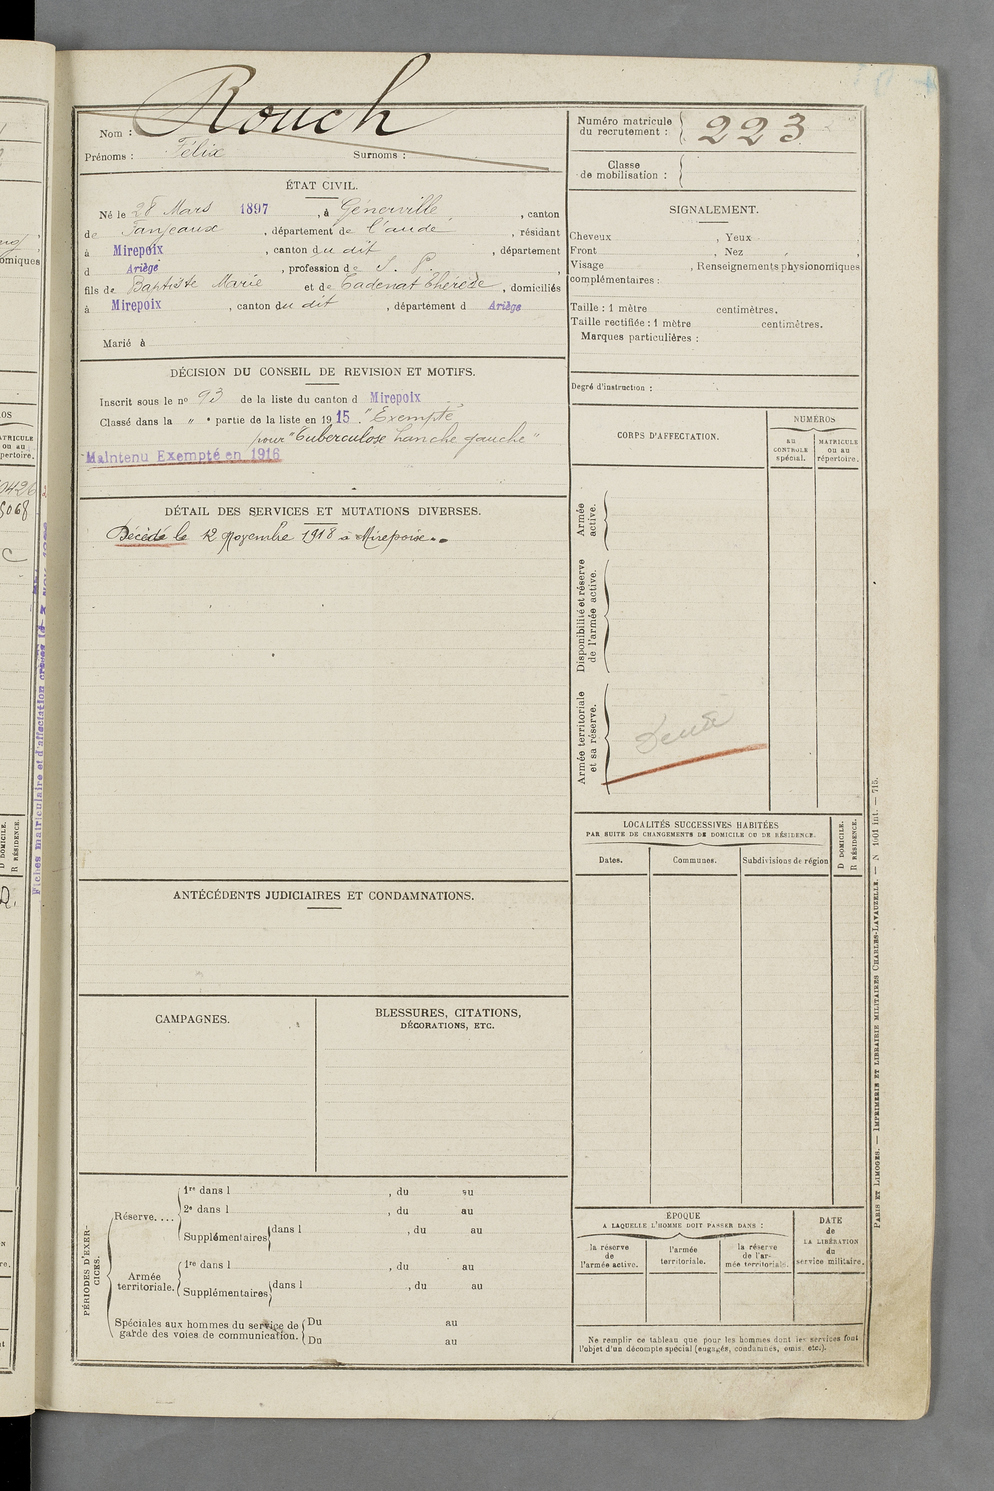 Rouch
Nom :
Prénoms : Félix Surnoms :
Numéro matricule
du recrutement : 223
Classe
de mobilisation :
ÉTAT CIVIL.
Né le 28 Mars 1897, à Génerville, canton
de Fanjeaux, département de l'aude, résidant
à Mirepoix, canton du dit, département
d Ariège, profession de S. P.,
fils de Baptiste Marie et de Cadenat Thérèse, domiciliés
à Mirepoix, canton du dit, département d Ariège
Marié à
SIGNALEMENT.
Cheveux , Yeux
Front , Nez , ,
Visage , Renseignements physionomiques
complémentaires :
Taille : 1 mètre centimètres.
Taille rectifiée : 1 mètre centimètres.
Marques particulières :
Degré d'instruction :
DÉCISION DU CONSEIL DE REVISION ET MOTIFS.
Inscrit sous le nº 93 de la liste du canton d Mirepoix
Classé dans la " e partie de la liste en 1915. "Exempté
pour "Tuberculose hanche gauche"
Maintenu Exempté en 1916
DÉTAIL DES SERVICES ET MUTATIONS DIVERSES.
Décédé le 12 Novembre 1918 à Mirepoix.
CORPS D'AFFECTATION.
NUMÉROS
au
CONTROLE
spécial.
MATRICULE
ou au
répertoire.
Armée
active.
Disponibilité et réserve
de l'armée active.
Armée territoriale
et sa réserve.
LOCALITÉS SUCCESSIVES HABITÉES
PAR SUITE DE CHANGEMENTS DE DOMICILE OU DE RÉSIDENCE.
Dates.
Communes.
Subdivisions de région
D DOMICILE.
R RÉSIDENCE.
ANTÉCÉDENTS JUDICIAIRES ET CONDAMNATIONS.
CAMPAGNES.
BLESSURES, CITATIONS,
DÉCORATIONS, ETC.
PÉRIODES D'EXER-
CICES.
Réserve....
1re dans l , du au
2e dans l , du au
Supplémentaires dans l , du au
Armée
territoriale.
1re dans l , du au
Supplémentaires dans l , du au
Spéciales aux hommes du service de
garde des voies de communication.
Du au
Du au
ÉPOQUE
A LAQUELLE L'HOMME DOIT PASSER DANS :
la réserve
de
l'armée active.
l'armée
territoriale.
la réserve
de l'ar-
mée territoriale.
DATE
de
LA LIBÉRATION
du
service militaire.
Ne remplir ce tableau que pour les hommes dont les services font
l'objet d'un décompte spécial (engagés, condamnés, omis, etc.).
PARIS ET LIMOGES. — IMPRIMERIE ET LIBRAIRIE MILITAIRES CHARLES-LAVAUZELLE. — N 1001 int. — 715.